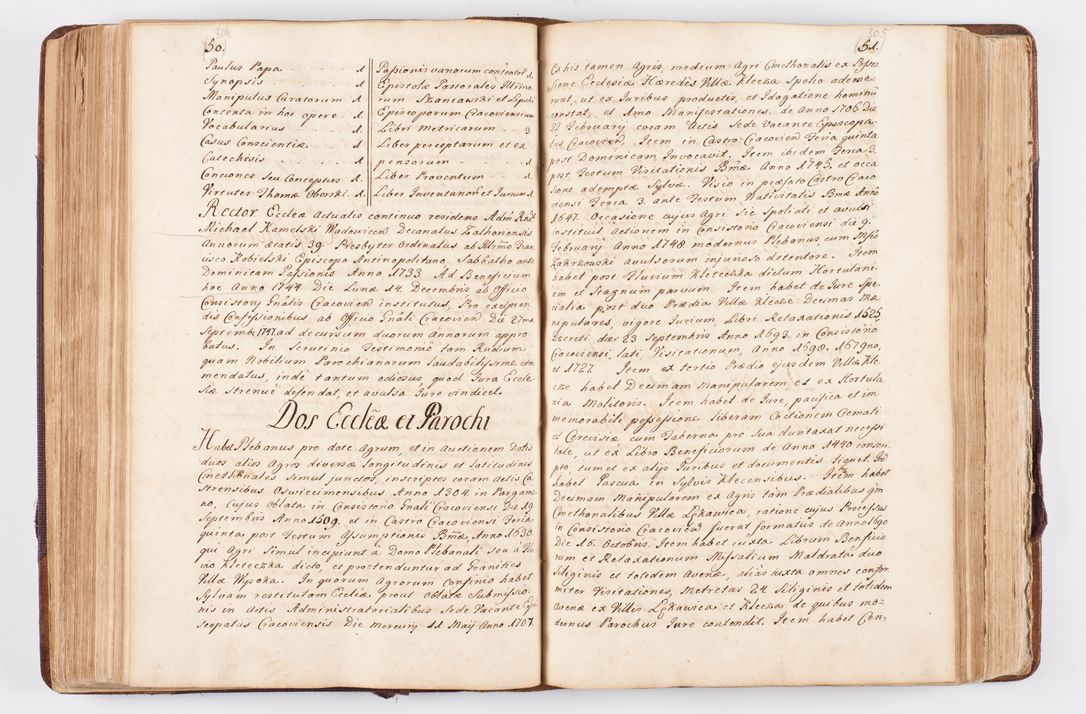 304
50.
Paulus Papa . . . 1
Synopsis . . . 1
Manipulus Curatorum . 1
Contenta in hoc opere . 1
Vocabularius . . . 1
Casus Conscientiæ . . 1
Catechesis . . . 1
Concuones seu Conceptus . 1
Virtutes Thomæ Oborski . 1
Passionis variorum content. 1.
Epistolæ Pastorales Illrmo
rum Szaniawski et Lipski
Episcoporum Cracoviensium
Libri Metricarum . 3
Liber perceptarum et ex
pensorum . . . 1
Liber Proventum . . 1
Liber Inventariorum et Iurium 1
Rector Eccleæ actualis continuo residens Adm Rnd
Michael Kamelski Wadovicen Decanatus Zathoriensis
Annorum ætatis 39. Presbyter Ordinatus ab Illrmo Fran
cisco Kobielski Episcopo Antinopolitano, Sabbatho ante
Dominicam Passionis Anno 1733. Ad Beneficium
hoc Anno 1744. Die Lunæ 14. Decembris ab Officio
Consistorij Gnalis Cracovien institutus, Pro excipien
dis Confessionibus ab Officio Gnali Cracovien Die 27ma
Septemb: 1747. ad decursum duorum Annorum appro
batus. In Scrutinio Testimonio tam Rudium
quam Nobilium Parochianorum laudabilissime com
mendatus, inde tantum odiosus, quod Jura Eccle
siæ strenue defendat, et avulsa Jure vindicet.
Dos Eccleæ et Parochi
Habet Plebanus pro dote Agrum, et in Auctionem Dotis
duos alios Agros diversæ longitudinis et latitudinis
Cmethonales simul junctos, inscriptos coram actis Ca
strensibus Oswiecimensibus Anno 1304. in Pargame
no, Cujus Oblata in Consistorio Gnali Cracoviensi Die 19
Septembris Anno 1509. et in Castro Cracoviensi Feria
quinta post Festum Assumptionis Bmæ, Anno 1630.
qui Agri simul incipiunt à Domo Plebanali seu à Flu
vio Kleteczka dicto, et protenduntur ad Granities
Villæ Wysoka. In quorum Agrorum Confinio habet
Sylvam restitutam Eccleiæ prout oblatæ Submissio
nis in Actis Administratorialibus Sede Vacante Epi
scopatus Cracoviensis Die Mercurij 11 Maij Anno 1707.
305
51.
Ex his tamen Agris, medium Agri Cmethonalis ex Posses
sione Ecclesiæ Hæredes Villæ Kleczka Spolio ademe
runt, ut ex Juribus productis, et Idagatione hominum
constat, et Anno Manifestationes. de Anno 1706. Die
22 February coram Actis Sede Vacante Episcopa
tus Cracovien, Item in Castro Cracovien Feria quinta
post Dominicam Invocavit, Item ibidem Feria 3.
post Festum Visitationis Bmæ Anno 1745. et occa
sione ademptæ Sylvæ. Visio in præfato Castro Craco
viensi Feria 3. ante Festum Nativitatis Bmæ Anno
1647. Occasione cujus Agri sic Spoliati et avulsi
instituit Actionem in Consistorio Cracoviensi die 9.
February Anno 1748 modernus Plebanus, cum Msso
Zakrzowski avulsorum injurioso detentore. Item
habet post Fluvium Kleteczka dictum Hortulani
am et Stagnum parvum. Item habet de Jure Spe
cialia post duo Prædia Villæ Kleczæ Decimas Ma
nipulares, vigore Jurium, Libri Retaxationis 1525.
Decreti dæs 23 Septembris Anno 1693. in Consistorio
Cracoviensi lati, Visitationum, Anno 1598. 1679no,
et 1727. Item ex tertio Prædio ejusdem Villæ Kle
czæ habet Decimam Manipularem, et ex Hortula
nia Molitoris. Item habet de Jure, pacifica et im
memorabili possessione liberam Coctionem Cremati
et Cerevisiæ cum Taberna pro Sua duntaxat necessi
tate, ut ex Libro Beneficiorum de Anno 1440 conscri
pto, tum et ex alijs Juribus et documentis liquet. Item
habet Pascua in Sylvis Kleczensibus. Item habet
Decimam Manipularem ex Agris tam Prædialibus qm
Cmethonalibus Villæ Lękawica, ratione cujus Processus
in Consistorio Cracovien fuerat formatus de Anno 1690
Die 16. Octobris. Item habet iuxta Librum Beneficio
rum et Retaxationum Missalium Maldrata duo
Siliginis et totidem Avenæ, alias iuxta omnes confor
miter Visitationes, Metretas 24. Siliginis et totidem
Avenæ ex Villis Lękawica et Kleczæ de quibus mo=
dernus Parochus Jure contendit. Item habet Cen=